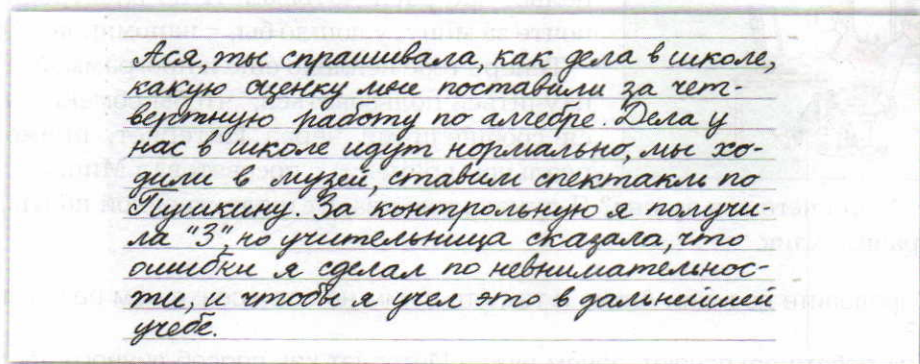 Ася, ты спрашивала, как дела в школе,
какую оценку мне поставили за чет-
вертную работу по алгебре. Дела у
нас в школе идут нормально, мы хо-
дили в музей, ставим спектакль по
Пушкину. За контрольную я получи-
ла "3", но учительница сказала, что
ошибки я сделал по невнимательнос-
ти, и чтобы я учел это в дальнейшей
учебе.